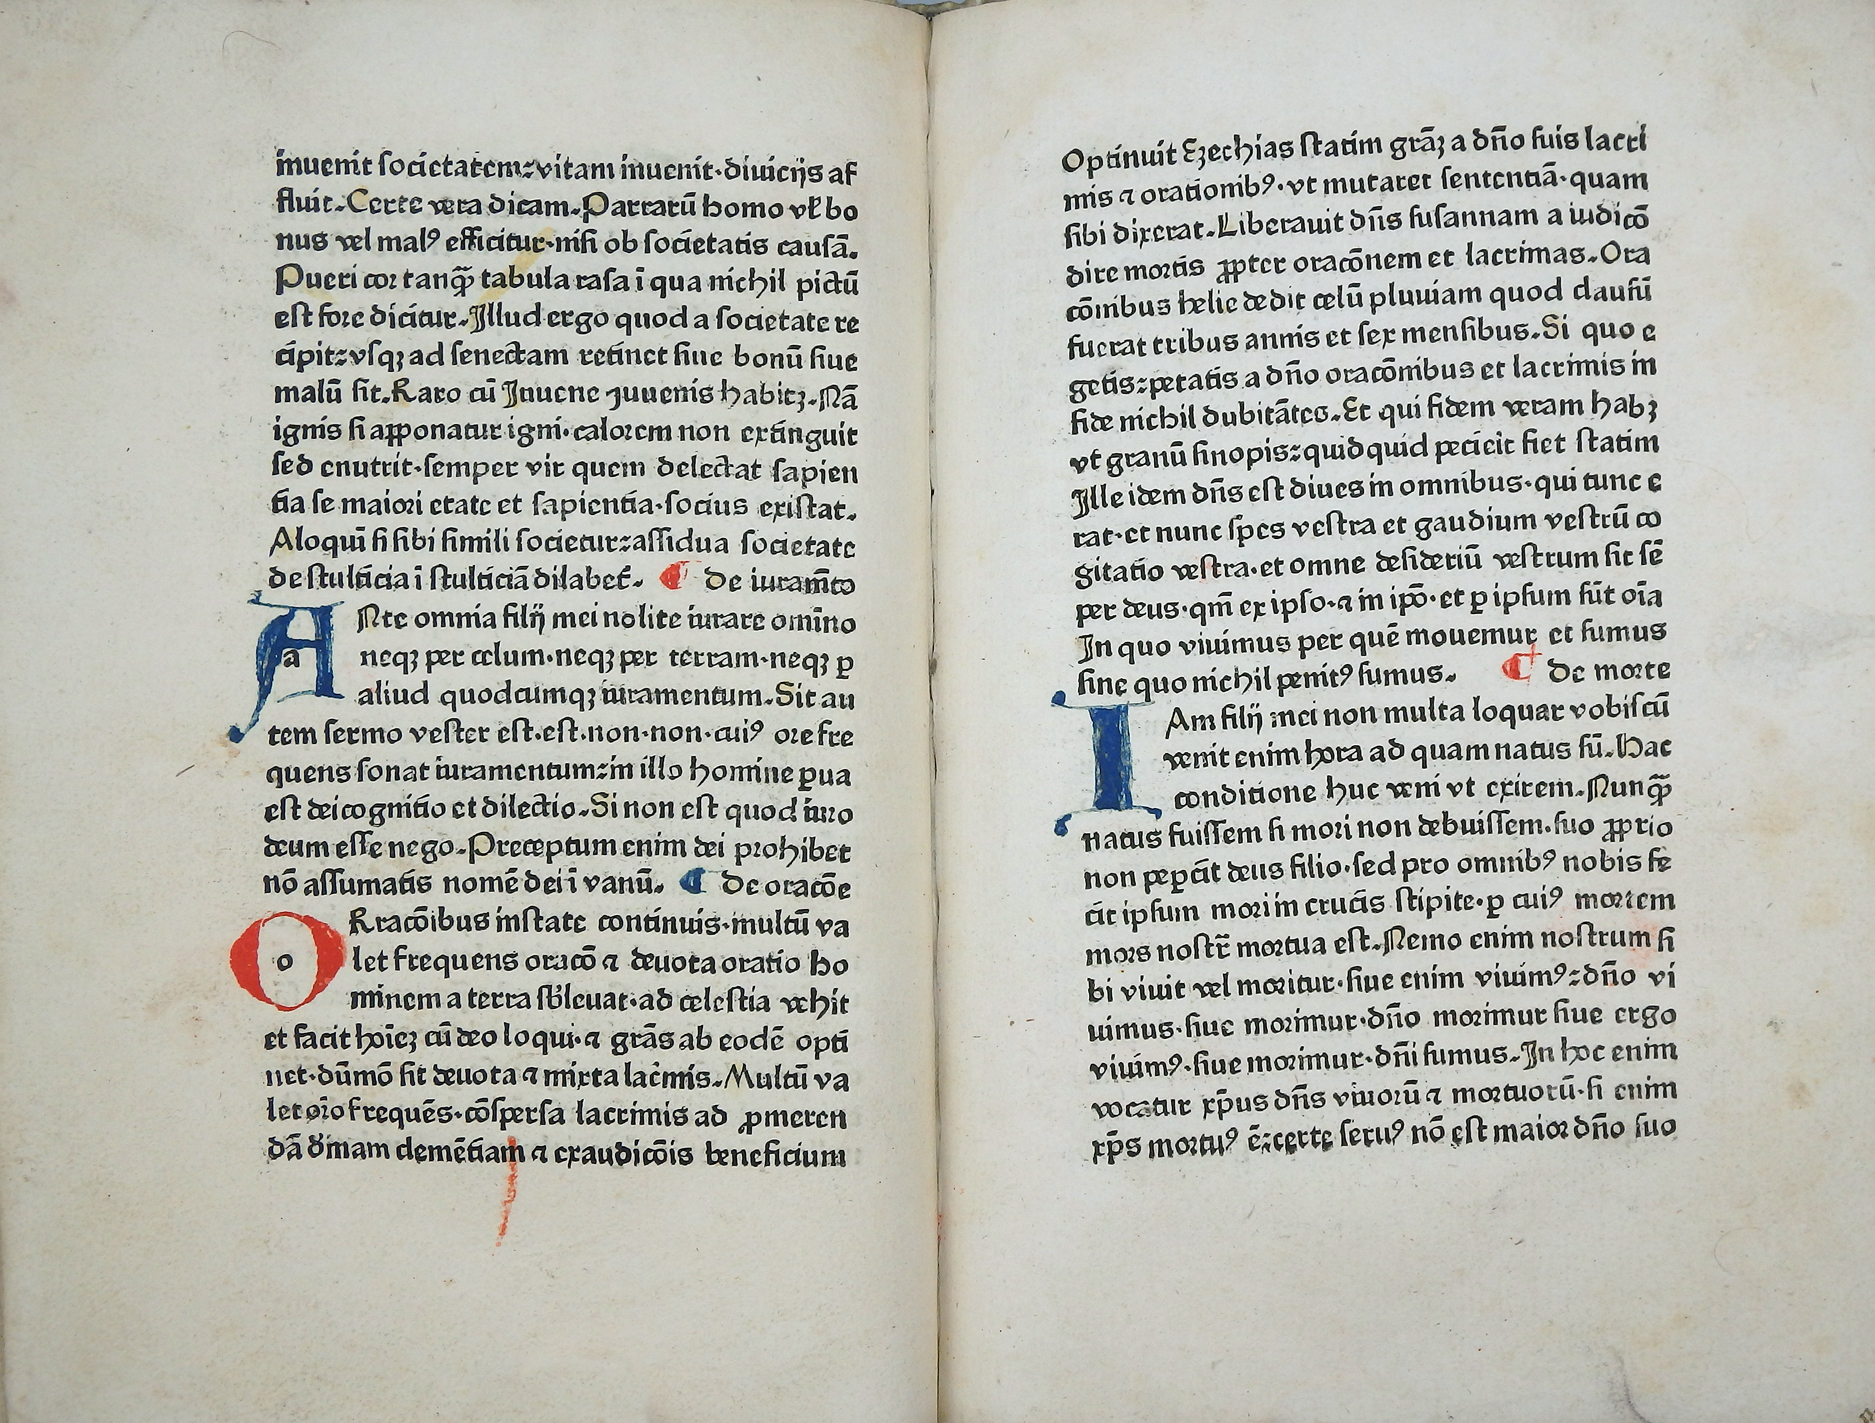 inuenit societatem:vitam inuenit·diuicijs af
fluit.Certe vera dicam.Parrarū homo vł bo
nus vel malꝰ efficitur·nisi ob societatis causā.
Pueri cor tanꝙ̄ tabula rasa ī qua nichil pictū
est fore dicitur.Illud ergo quod a societate re
cipit:vsqꝫ ad senectam retinet siue bonū siue
malū sit.Raro cū Iuuene juuenis habitꝫ.Nā
ignis si apponatur igni·calorem non extinguit
sed enutrit·semper vir quem delectat sapien
tia se maiori etate et sapientia·socius existat.
Aloquī si sibi simili societur:assidua societate
de stulticia ī stulticiā dilabet̄. ¶ De iuram̄to
A Nte omnia filij mei nolite iurare omīno
a neqꝫ per celum·neqꝫ per terram·neqꝫ ꝑ
aliud quodcumqꝫ iuramentum.Sit au
tem sermo vester est.est.non·non·cuiꝰ ore fre
quens sonat iuramentum:in illo homine ꝑua
est dei cognitio et dilectio.Si non est quod iuro
deum esse nego.Preceptum enim dei prohibet
nō assumatis nomē dei ī vanū. ¶ De oracōe
O Racōibus instate continuis·multū va
o let frequens oracō ⁊ deuota oratio ho
minem a terra sb̄leuat·ad celestia vehit
et facit hoīeꝫ cū deo loqui·⁊ grās ab eodē opti
net·dūmō sit deuota ⁊ mixta lac̄mis.Multū va
let oīo frequēs·cōspersa lacrimis ad ꝓmeren
dā dīnam clemētiam ⁊ exaudicōis beneficium
Optinuit Ezechias statim grāꝫ a dn̄o suis lacri
mis ⁊ orationibꝰ·vt mutaret sententiā·quam
sibi dixerat.Liberauit dn̄s susannam a iudicō
dire mortis ꝓpter oracōnem et lacrimas.Ora
cōnibus helie dedit celū pluuiam quod clausū
fuerat tribus annis et sex mensibus.Si quo e
getis:petatis a dn̄o oracōnibus et lacrimis in
fide nichil dubitātes.Et qui fidem veram habꝫ
vt granū sinopis:quidquid pecieīt fiet statim
Ille idem dn̄s est diues in omnibus·qui tunc e
rat·et nunc spes vestra et gaudium vestrū co
gitatio vestra·et omne desideriū vestrum sit sē
per deus·qm̄ ex ipso·⁊ in ipō·et ꝑ ipsum sūt oīa
In quo viuimus per quē mouemur et sumus
sine quo nichil penitꝰ sumus. ¶ De morte
I Am filij mei non multa loquar vobiscū
venit enim hora ad quam natus sū.Hac
conditione huc veni vt exirem.Nunꝙ̄
natus fuissem si mori non debuissem.suo ꝓprio
non peꝑcit deus filio·sed pro omnibꝰ nobis fe
cit ipsum mori in crucis stipite·ꝑ cuiꝰ mortem
mors nostr̄ mortua est.Nemo enim nostrum si
bi viuit vel moritur·siue enim viuimꝰ:dn̄o vi
uimus·siue morimur·dn̄o morimur siue ergo
viuimꝰ·siue morimur·dn̄i sumus.In hoc enim
vocatur xp̄us dn̄s viuorū ⁊ mortuorū·si enim
xp̄s mortuꝰ ē:certe seruꝰ nō est maior dn̄o suo